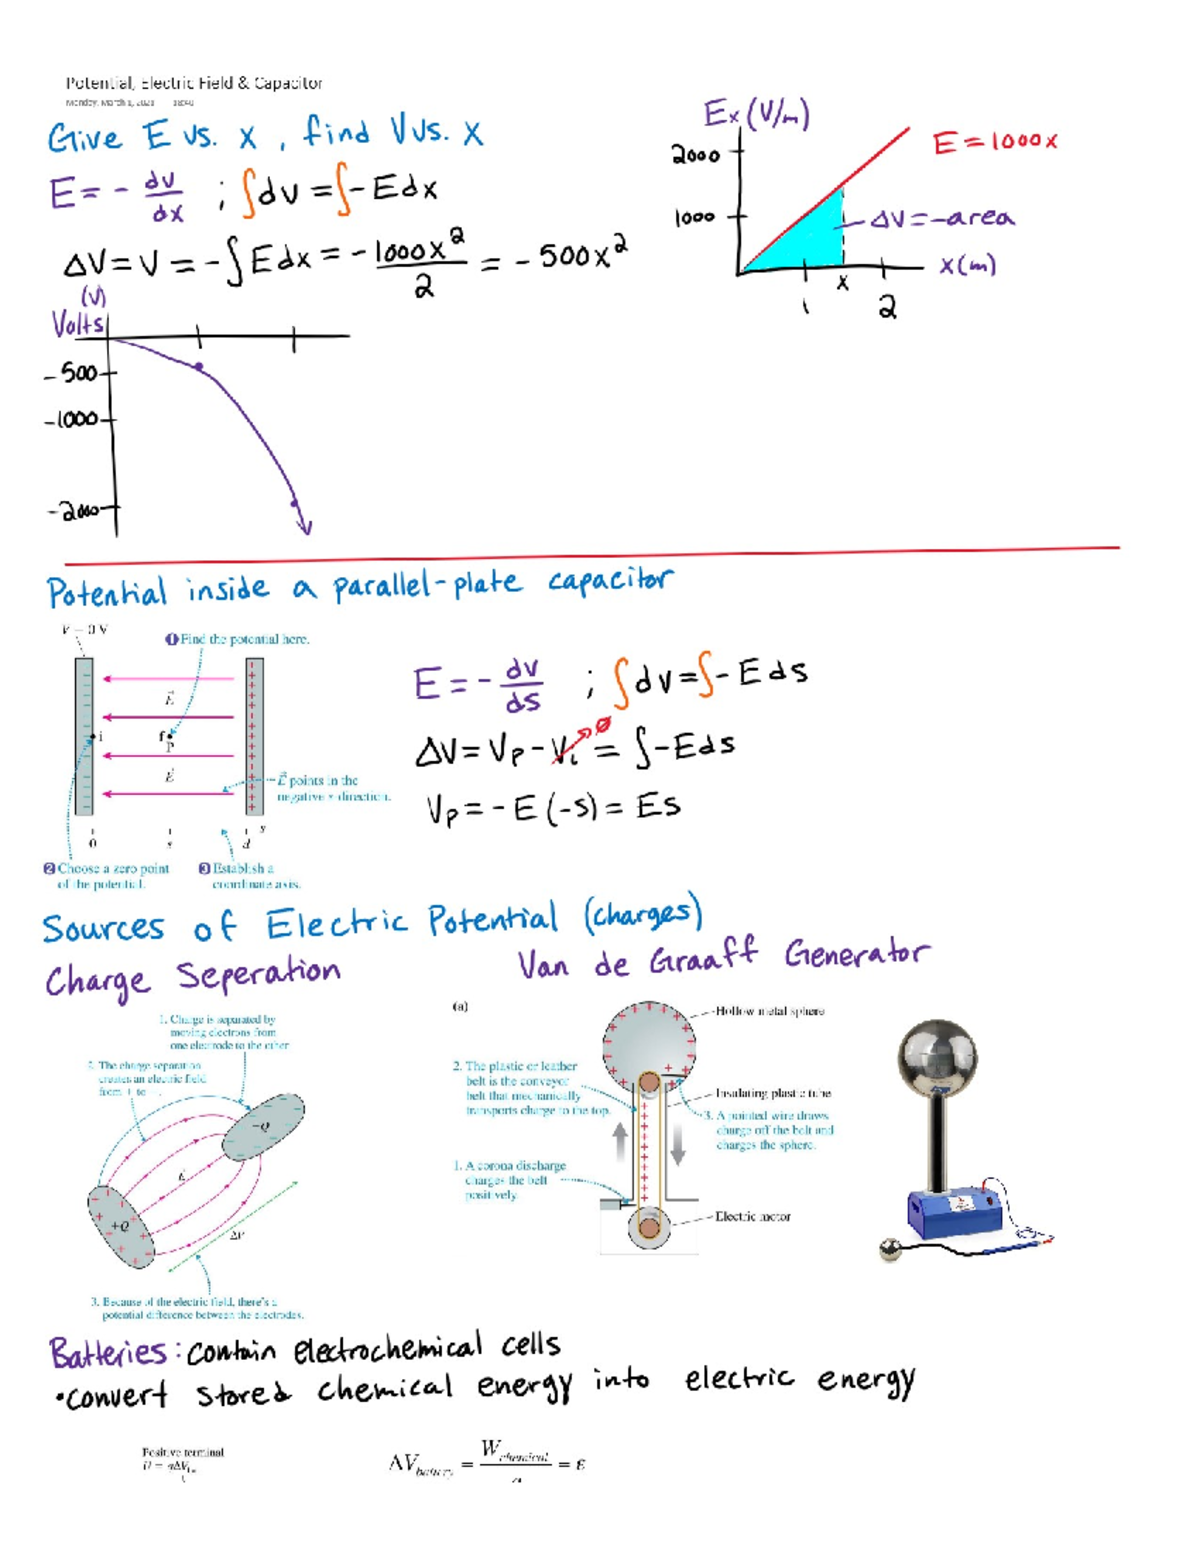 Potential, Electric Field & Capacitor
Monday, March 1, 2021
Give E vs. x , find V vs. x
E = - dv/dx ; ∫dv = ∫- Edx
ΔV = V = -∫Edx = - 1000x²/2 = - 500x²
(V)
Volts
-500
-1000
-2000
Ex (V/m)
2000
1000
E = 1000x
ΔV = -area
x(m)
x
1
2
Potential inside a parallel-plate capacitor
V = 0 V
1 Find the potential here.
E
i
f
P
E
E points in the
negative s direction.
0
s
d
s
2 Choose a zero point
of the potential.
3 Establish a
coordinate axis.
E = - dv/ds ; ∫dv = ∫- Eds
ΔV = Vp - Vi = ∫-Eds
Ø
Vp = - E (-s) = Es
Sources of Electric Potential (charges)
Charge Seperation
Van de Graaff Generator
1. Charge is separated by
moving electrons from
one electrode to the other
2. The charge separation
creates an electric field
from + to -.
-Q
E
+Q
ΔV
3. Because of the electric field, there's a
potential difference between the electrodes.
(a)
Hollow metal sphere
2. The plastic or leather
belt is the conveyor
belt that mechanically
transports charge to the top.
Insulating plastic tube
3. A pointed wire draws
charge off the belt and
charges the sphere.
1. A corona discharge
charges the belt
positively.
Electric motor
Batteries: contain electrochemical cells
• convert stored chemical energy into electric energy
Positive terminal
U = qΔV
ΔVbattery = Wchemical/q = ε